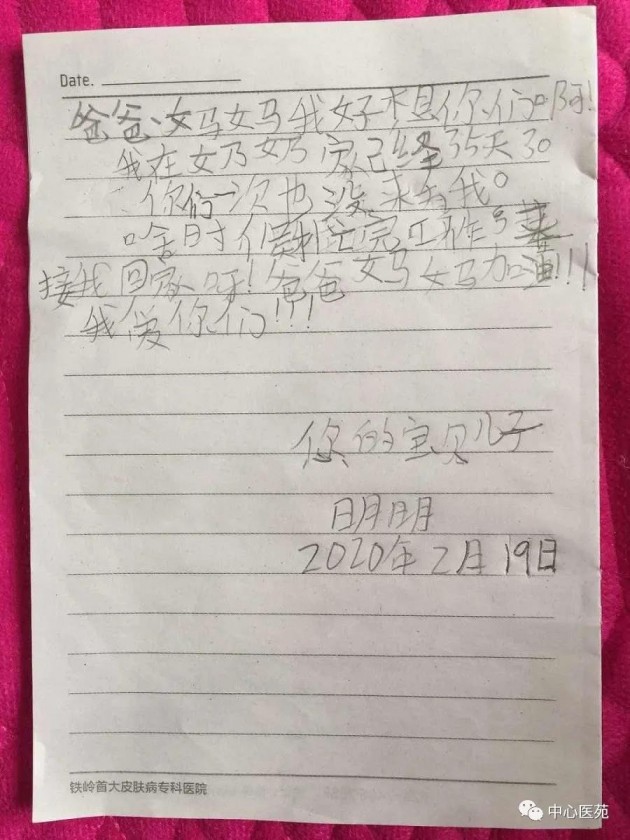 Date.
爸爸、妈妈我好想你们啊!
我在奶奶家已经35天了。
你们一次也没来看我。
啥时候忙完工作
接我回家呀!爸爸妈妈加油!!!
我爱你们!!!
您的宝贝儿子
明明
2020年2月19日
铁岭首大皮肤病专科医院
中心医苑